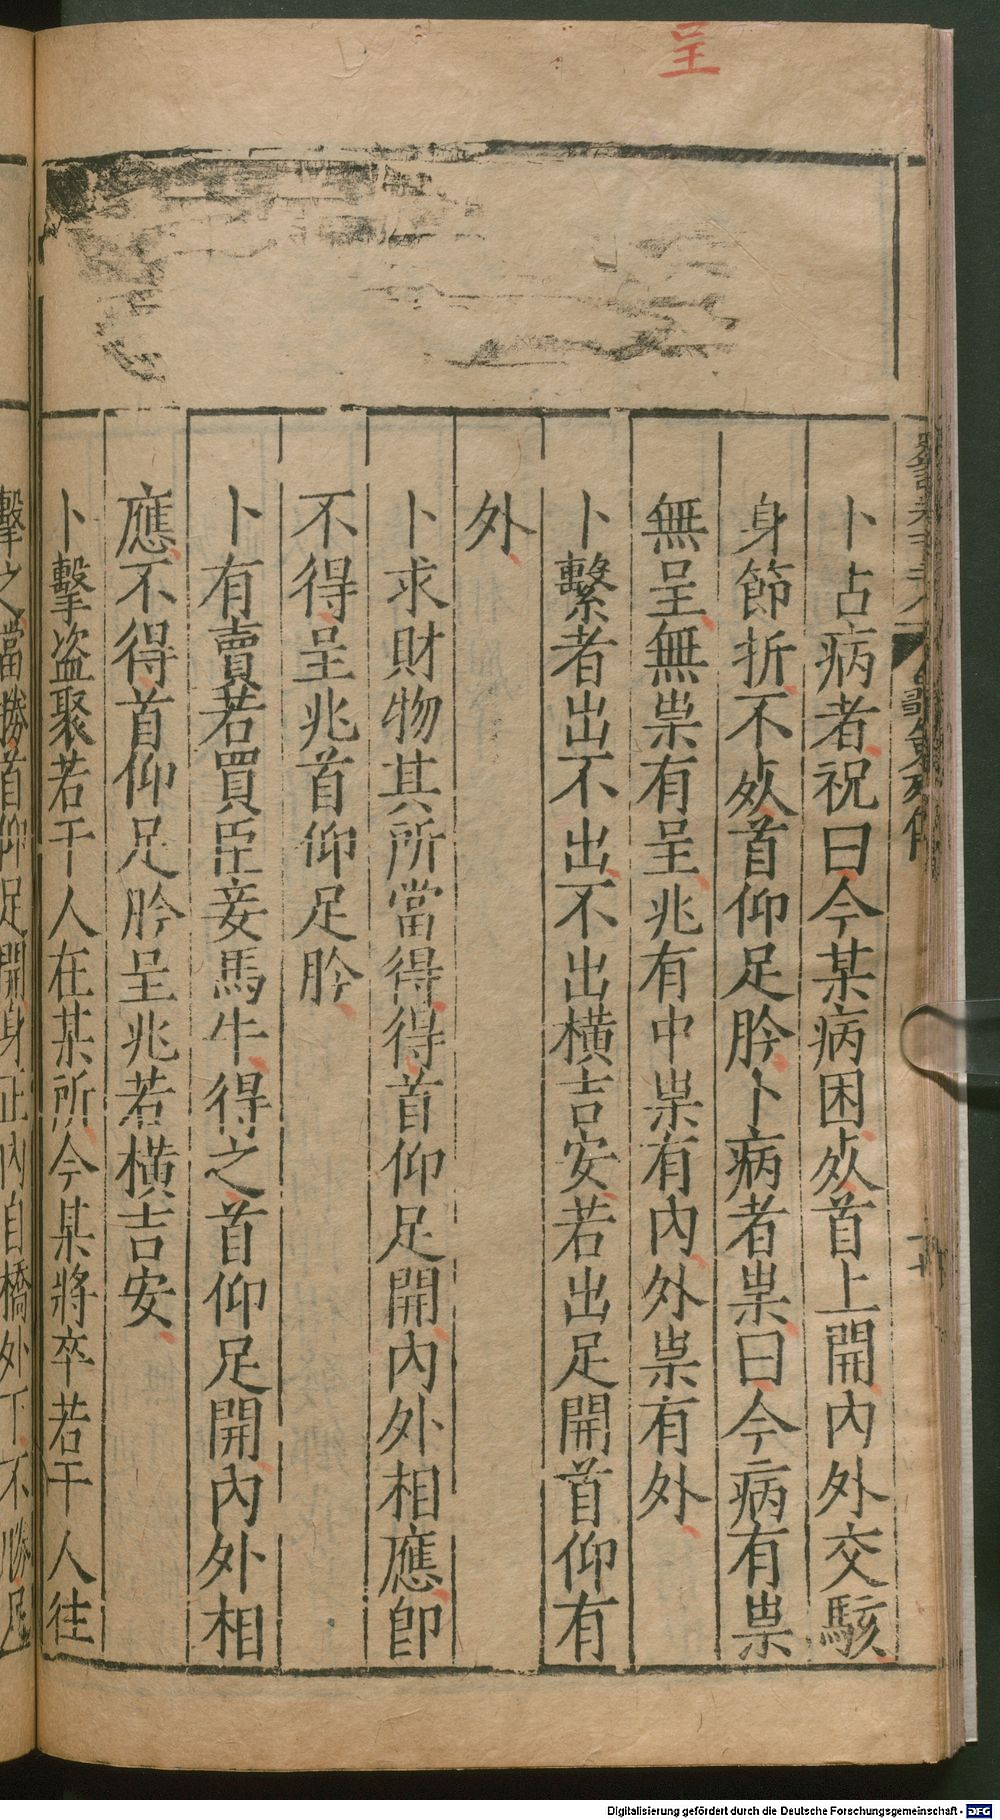 呈
卜占病者祝曰今某病困死首上開內外交駭
身節折不死首仰足肣卜病者祟曰今病有祟
無呈無祟有呈兆有中祟有內外祟有外
卜繫者出不出不出橫吉安若出足開首仰有
外
卜求財物其所當得得首仰足開內外相應卽
不得呈兆首仰足肣
卜有賣若買臣妾馬牛得之首仰足開內外相
應不得首仰足肣呈兆若橫吉安
卜擊盜聚若干人在某所今某將卒若干人往
擊之當勝首仰足開身正內自橋外下不勝足
Digitalisierung gefördert durch die Deutsche Forschungsgemeinschaft - DFG